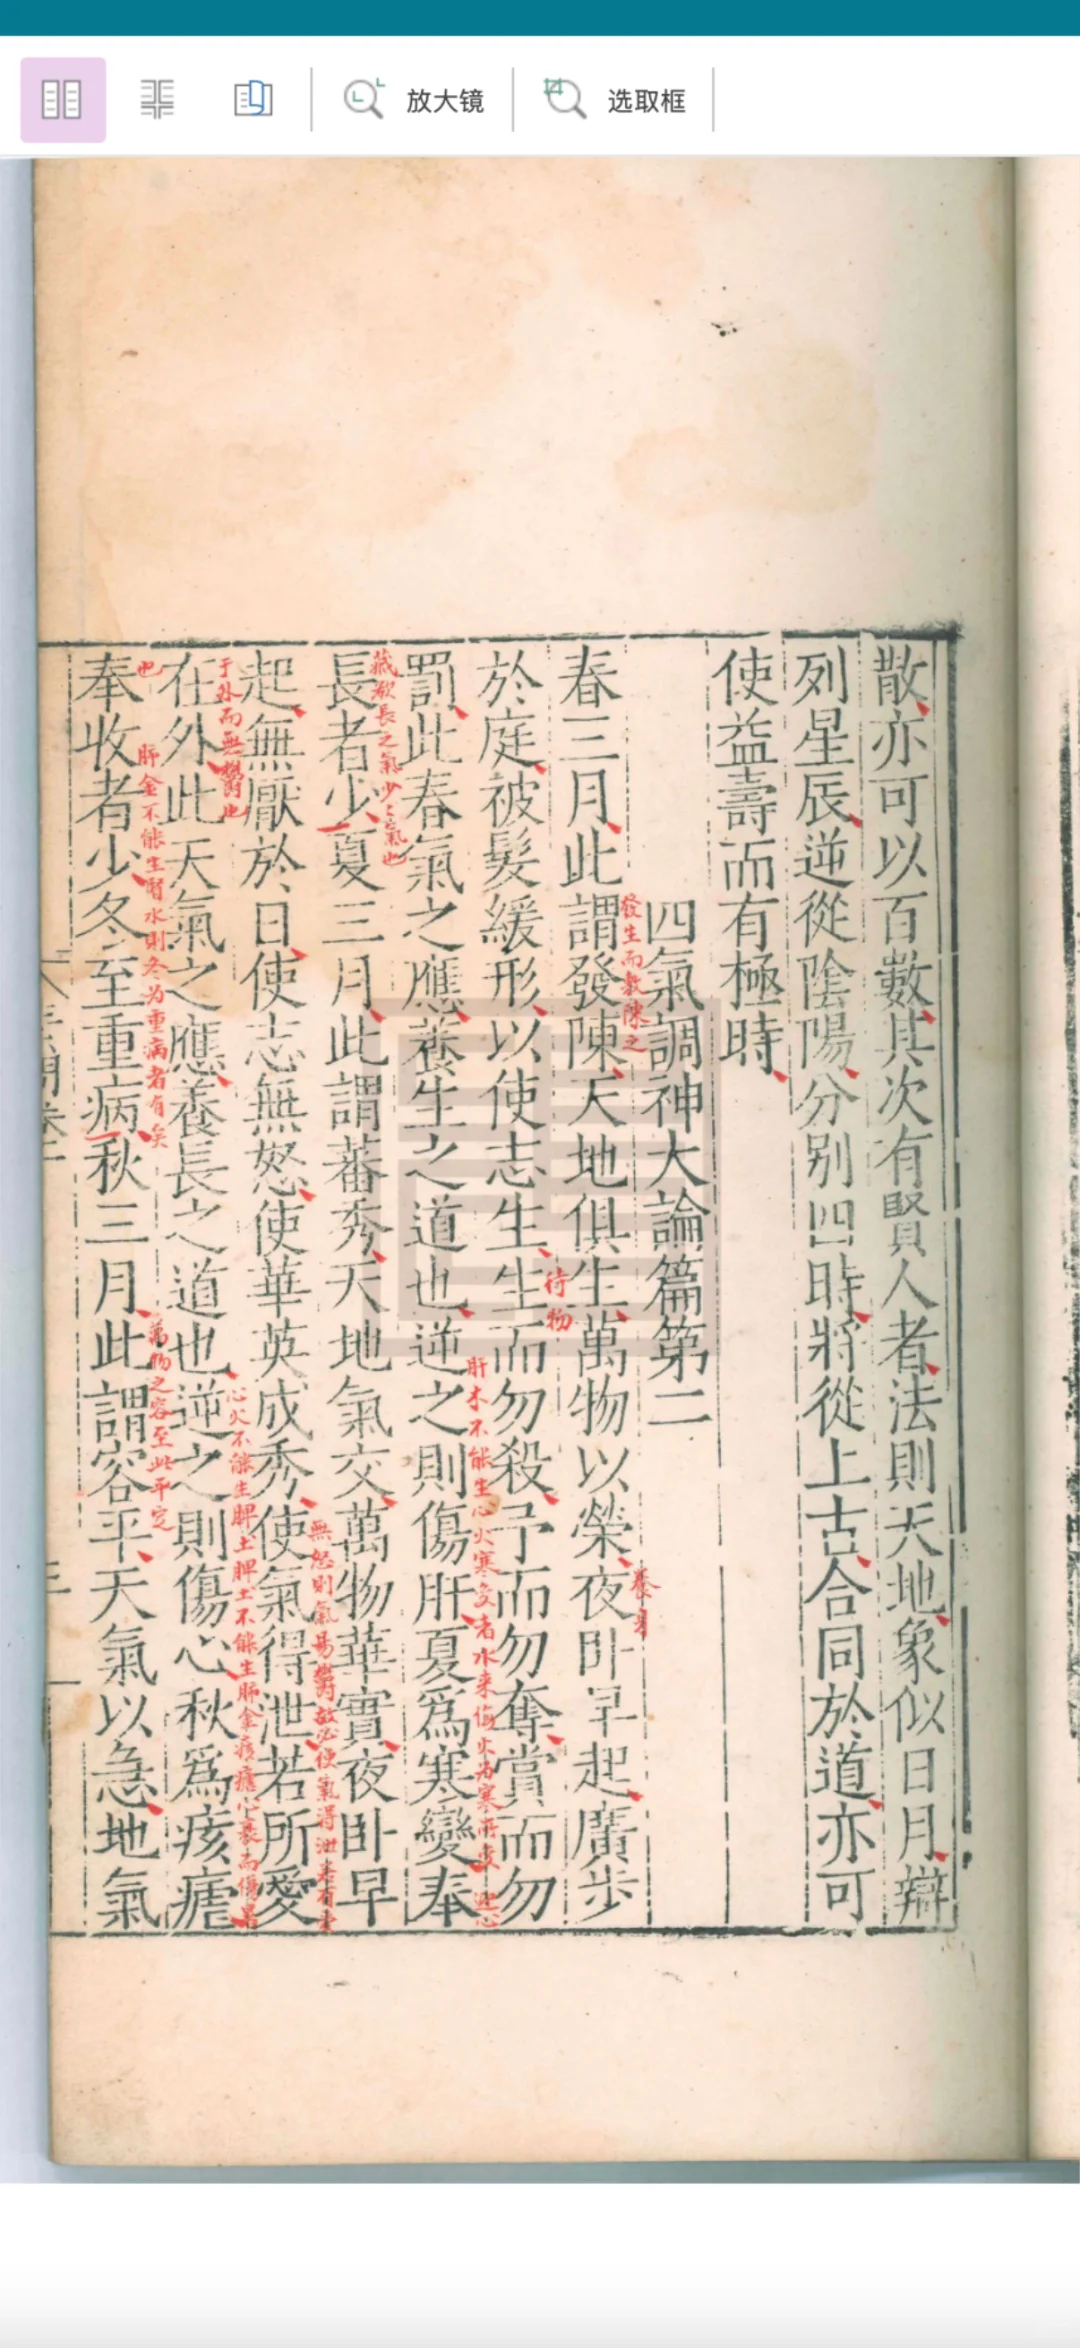 放大镜
选取框
散亦可以百數其次有賢人者法則天地象似日月辯
列星辰逆從陰陽分別四時將從上古合同於道亦可
使益壽而有極時
四氣調神大論篇第二
發生而敷陳之
春三月此謂發陳天地俱生萬物以榮夜卧早起廣步
待物
於庭被髮緩形以使志生生而勿殺予而勿奪賞而勿
肝木不能生心火寒变者水来侮火为寒所变
罰此春氣之應養生之道也逆之則傷肝夏爲寒變奉
長者少夏三月此謂蕃秀天地氣交萬物華實夜卧早
無怒則氣易鬱故必使氣得泄若有
起無厭於日使志無怒使華英成秀使氣得泄若所愛
于外而無鬱也
心火不能生脾土脾土不能生肺金痎瘧心衰而傷暑
在外此天氣之應養長之道也逆之則傷心秋爲痎瘧
也
肝金不能生腎水則冬为重病者有矣
萬物之容至此平定
奉收者少冬至重病秋三月此謂容平天氣以急地氣